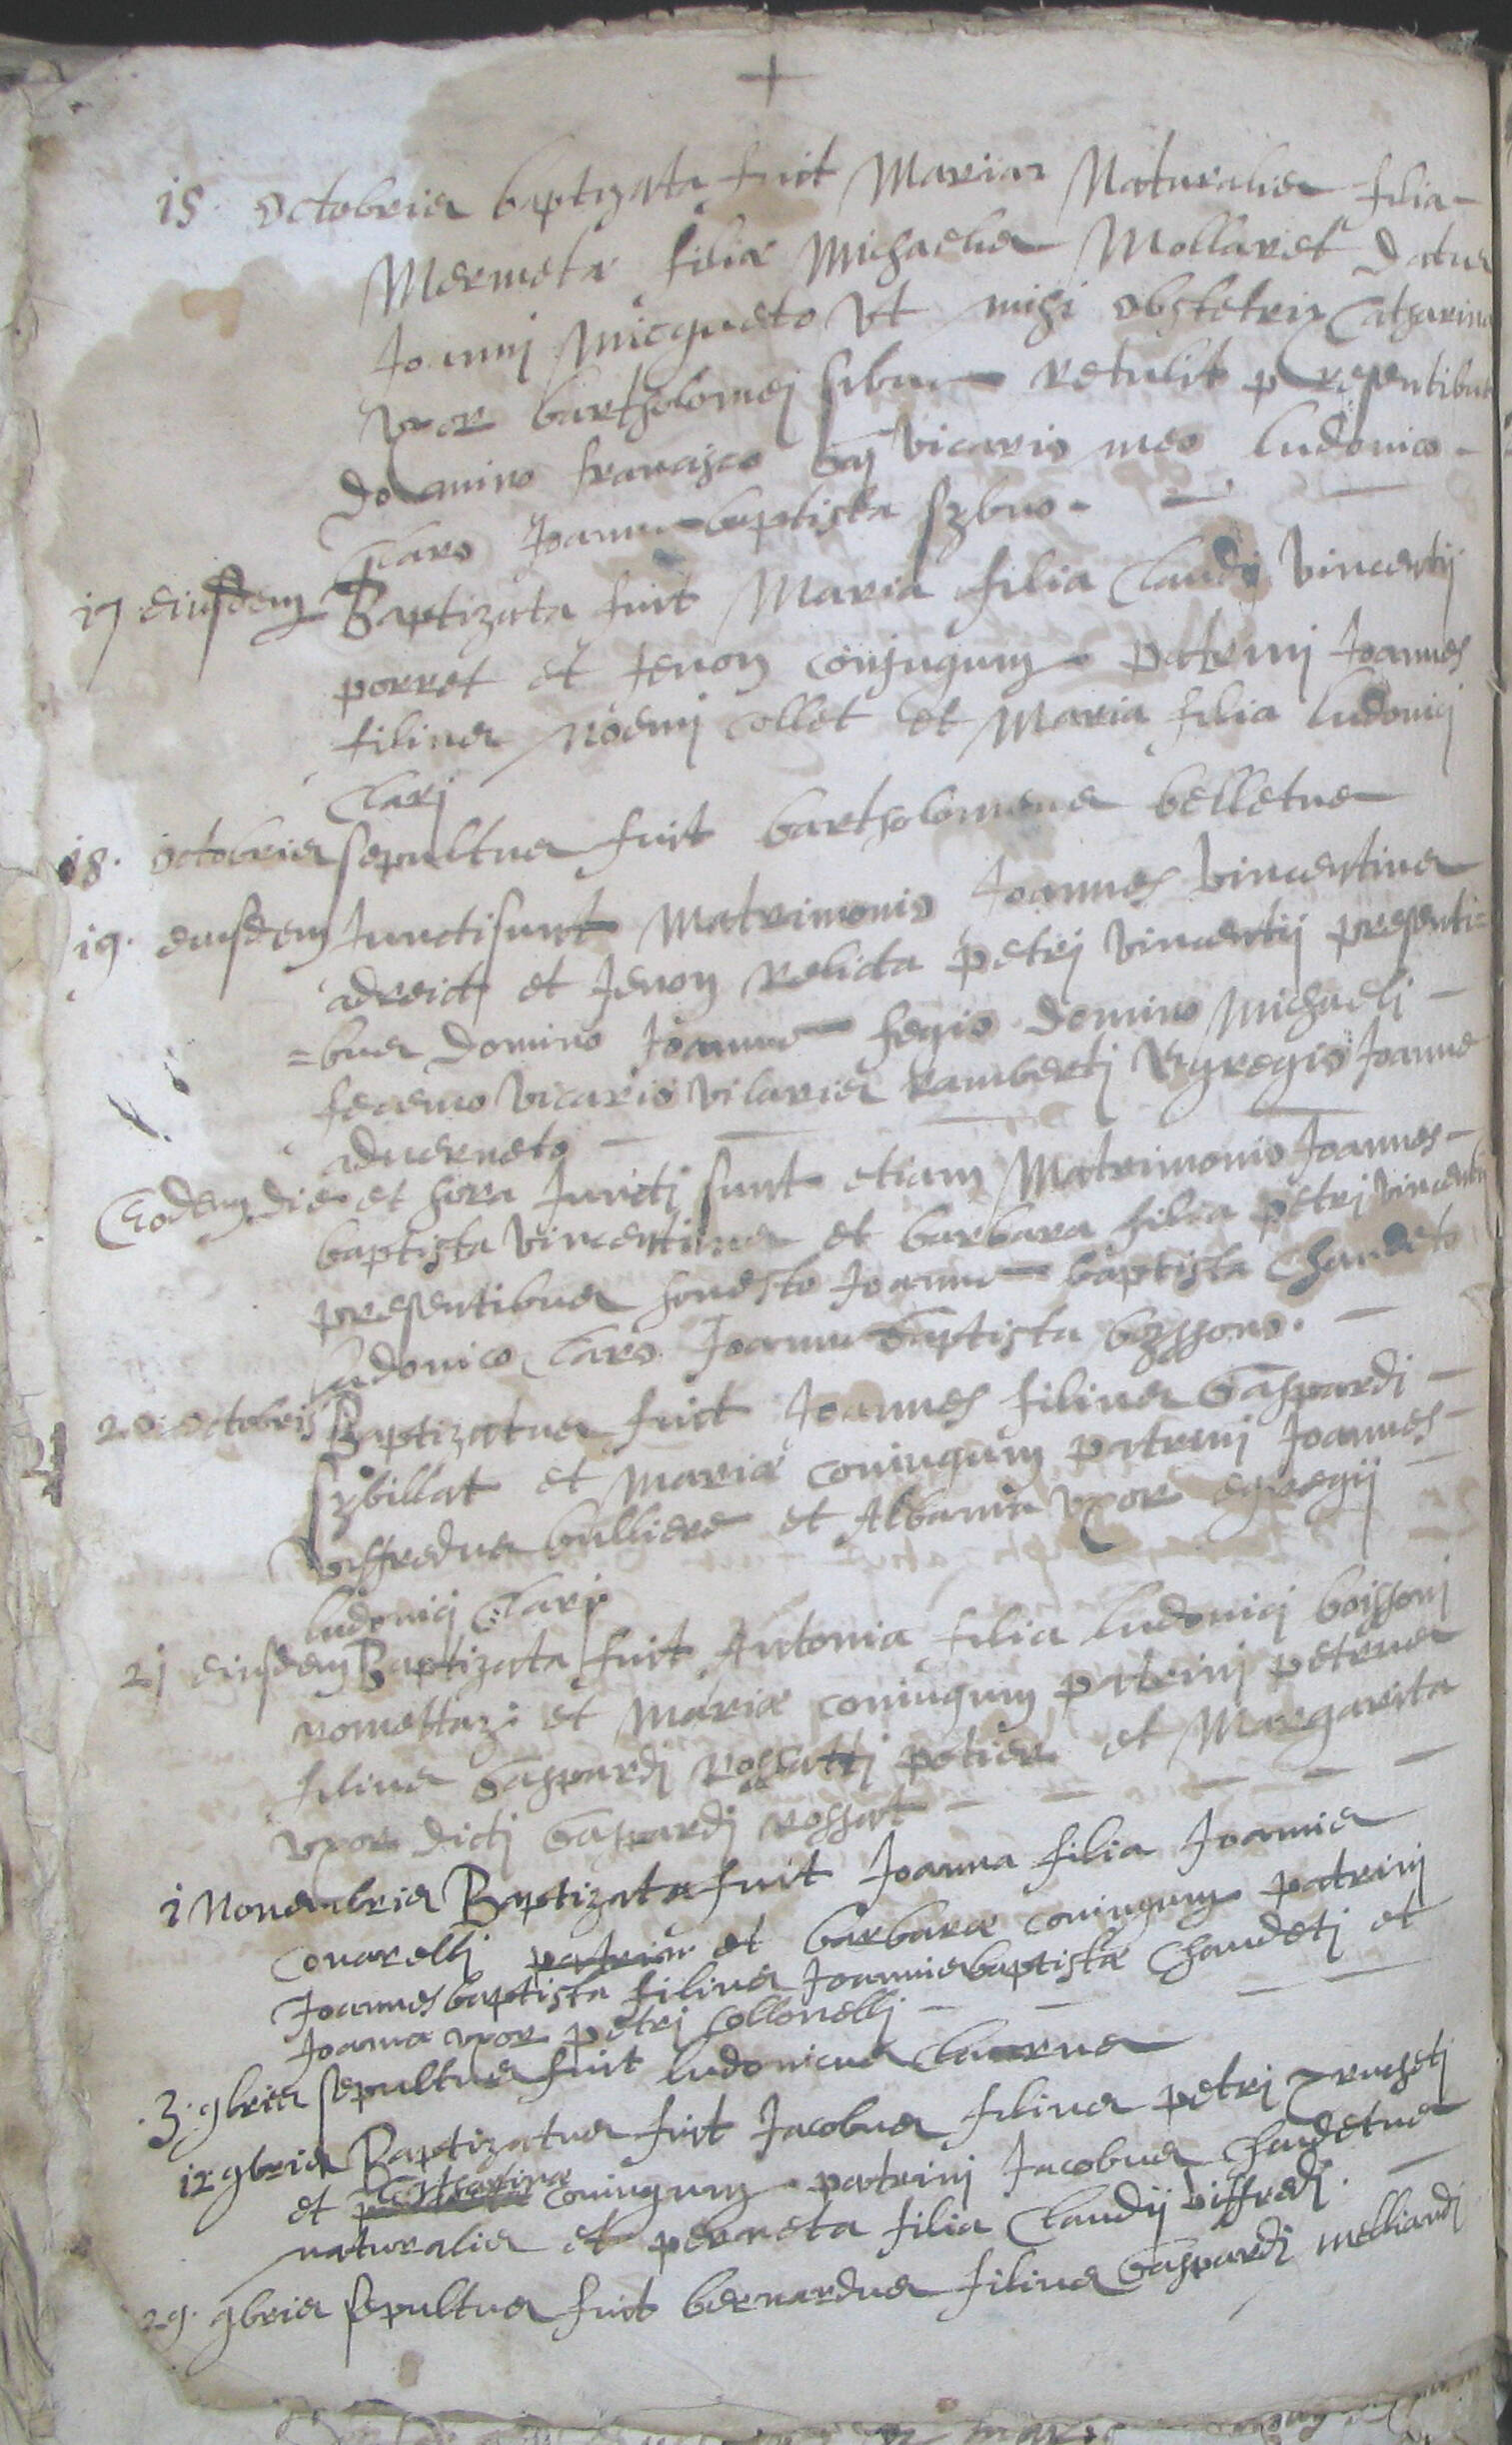 +
15. octobris baptizata fuit Maria Naturalis filia
Mermetæ filiæ Michaelis Mollaret datus
Joanni Micqueto Vt mihi obstetrix Catharina
vxor bartholomej retulit presentibus
domino francisco Vicario meo ludovico
Claro Joanne baptista
17 eiusdem Baptizata fuit Maria filia Claudij Vincentij
porret et Jenon coniugum patrini Joannes
filius Noemj collet et Maria filia ludovici
Clarj
18. octobris sepultus fuit bartholomeus belletus
19. eiusdem Juncti sunt Matrimonio Joannes Vincentius
et Jenon relicta petrj Vincentij presenti=
=bus domino Joanne domino Michaeli
Vicario Vilaris ramberti Egregio Joanne
Eodem die et hora Junctj sunt etiam Matrimonio Joannes
baptista Vincentius et barbara filia petrj Vincentij
presentibus honesto Joanne baptista Chaudeto
ludovico Claro Joanne baptista
20. octobris Baptizatus fuit Joannes filius Gaspardi
Sybillat et Mariæ coniugum patrini Joannes
Viffredus bulliere et Albania vxor egregij
ludovicj Clarj
21 eiusdem Baptizata fuit Antonia filia ludovici boissonj
et Mariæ coniugum patrinj petrus
filius Gaspardj rossatti et Margarita
vxor dictj Gaspardj rossat
1 Novembris Baptizata fuit Joanna filia Joannis
Covarellj et barbaræ coniugum patrinj
Joannes baptista filius Joannis baptistæ Chaudetj et
Joanna vxor petrj Collonellj
3. 9bris sepultus fuit ludovicus Clarus
12 9bris Baptizatus fuit Jacobus filius petrj
et Catharinæ coniugum patrinj Jacobus Chaudetus
naturalis et perneta filia Claudij Viffredj.
29. 9bris sepultus fuit bernardus filius Gaspardj